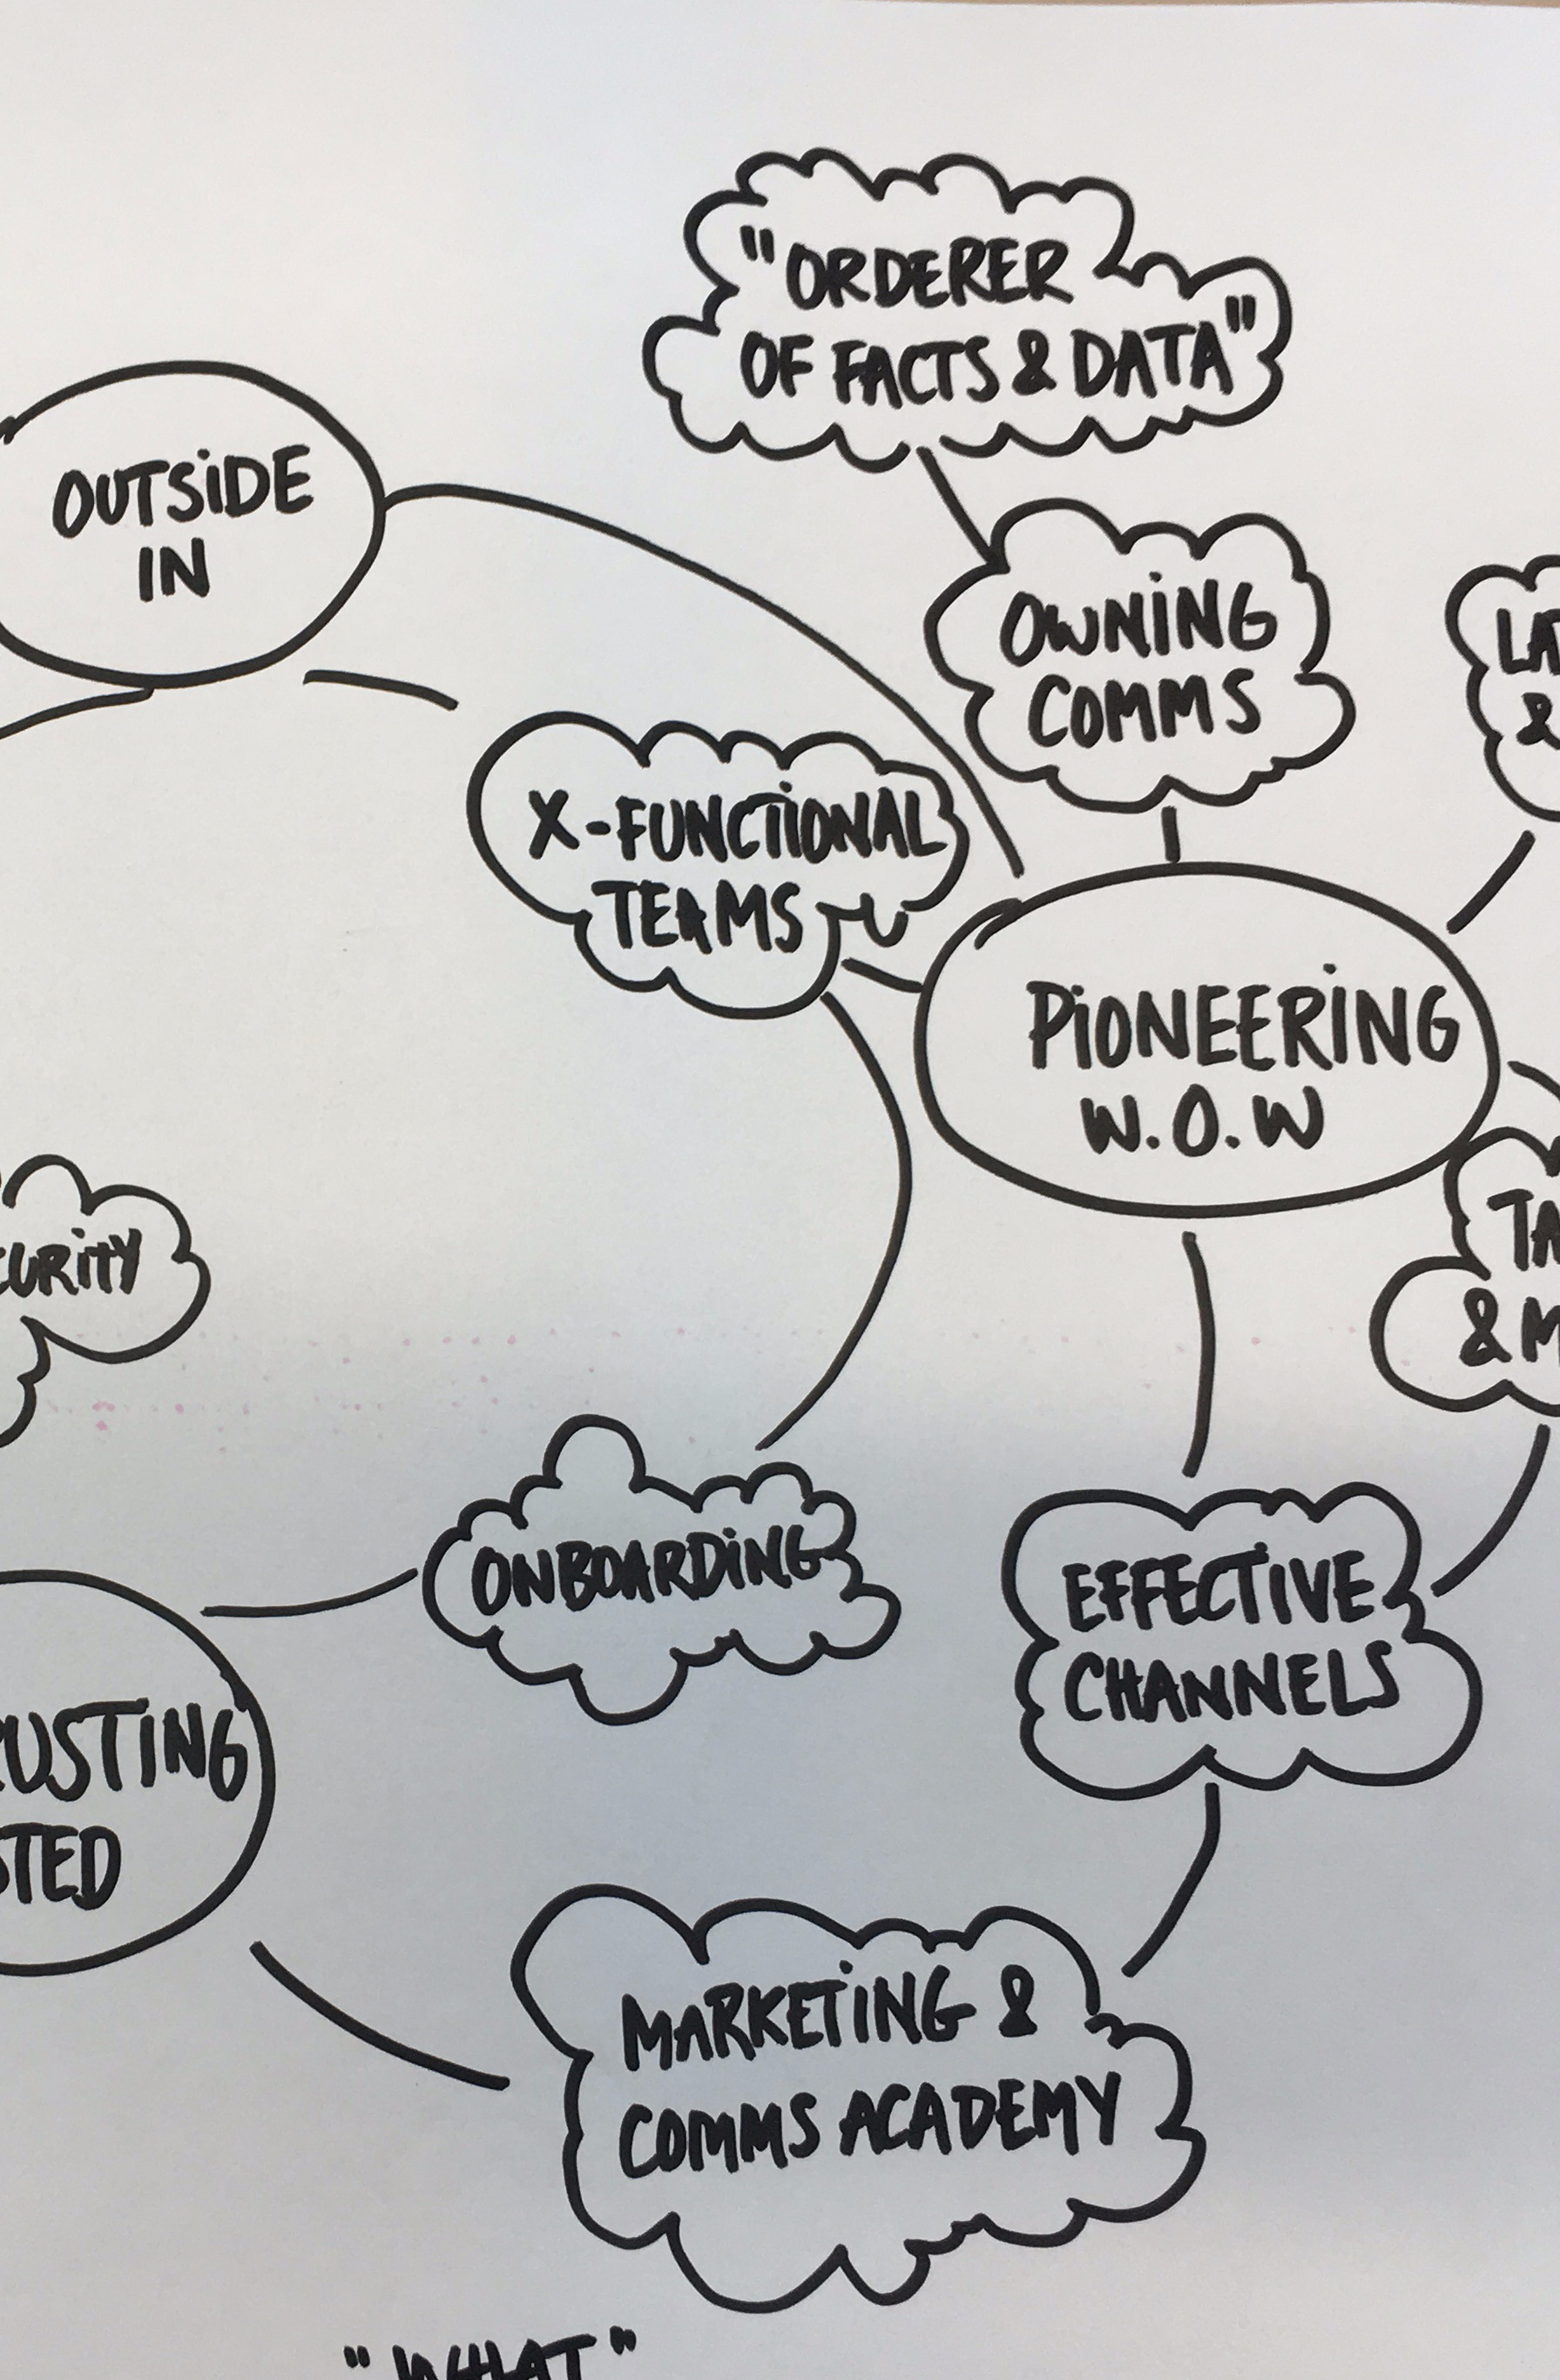 "ORDERER
OF FACTS & DATA"
OUTSIDE
IN
OWNING
COMMS
X-FUNCTIONAL
TEAMS
PIONEERING
W.O.W
&
&
ONBOARDING
EFFECTIVE
CHANNELS
MARKETING &
COMMS ACADEMY
"WHAT"